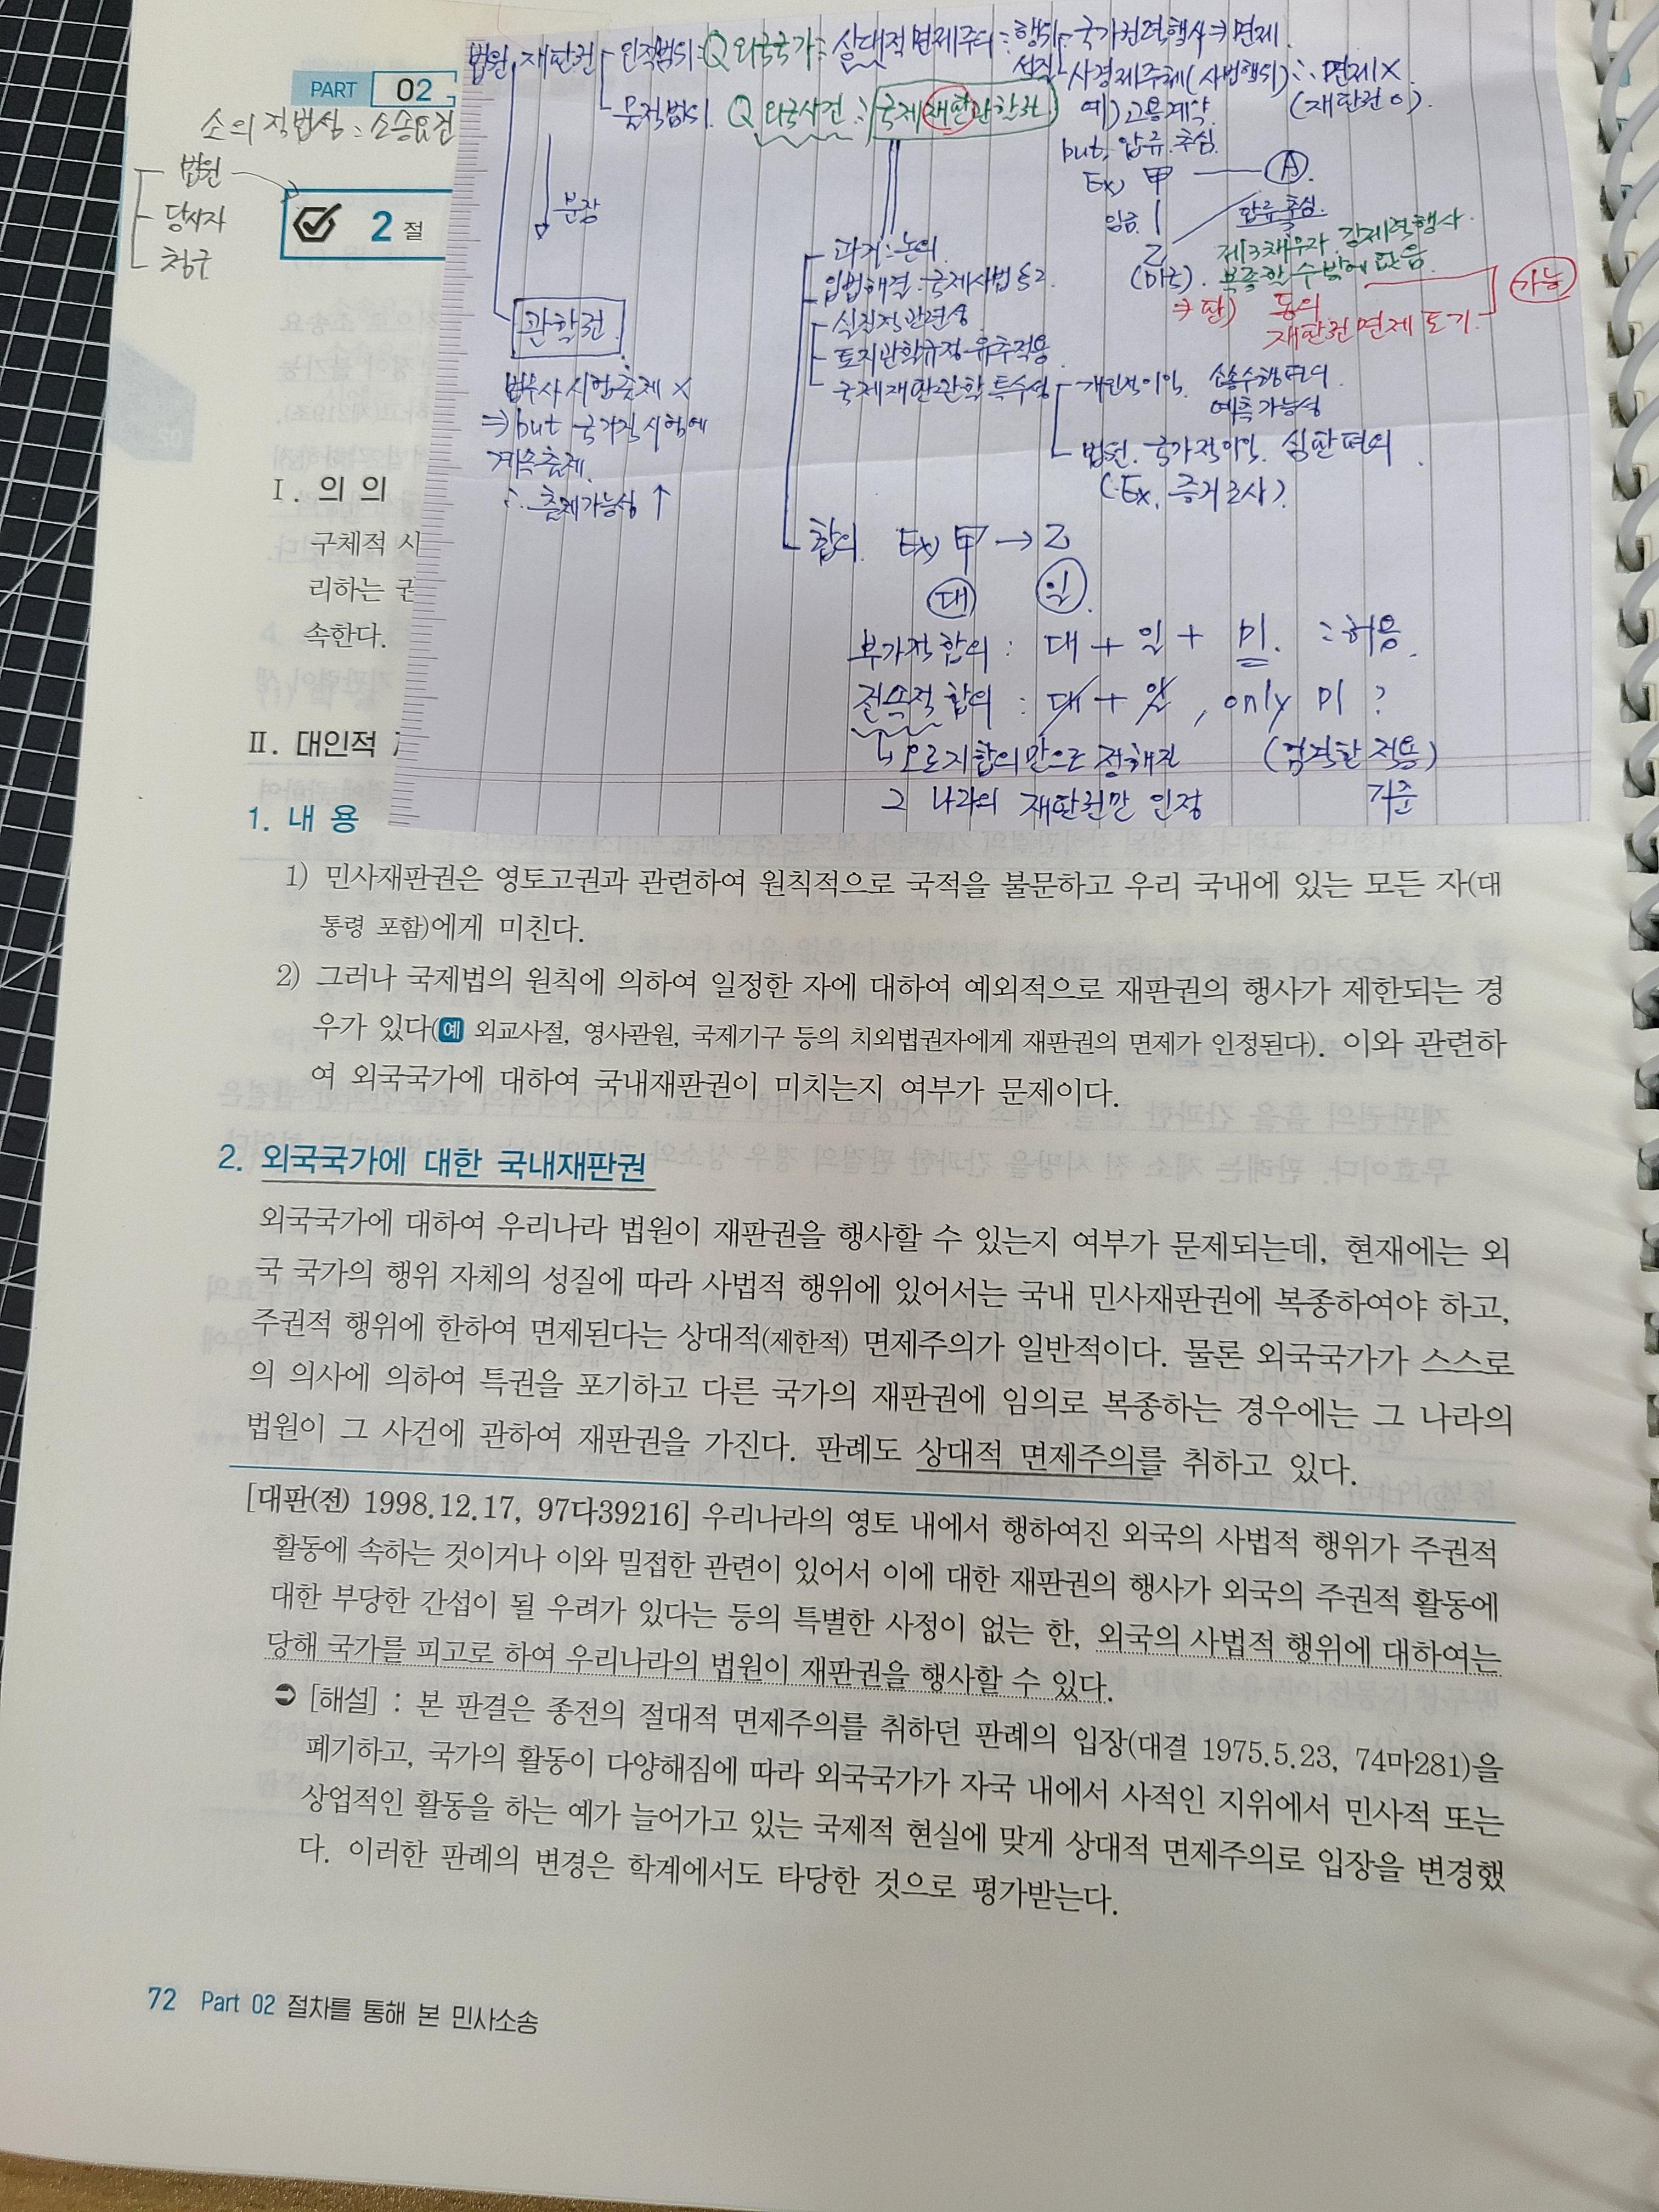 PART 02
소의 적법성 : 소송요건
법원
당사자
청구
2 절
법원 재판권 인적범위 : Q 외국국가 : 상대적 면제주의 : 행위 성질
국가권력행사 ⇒ 면제
사경제주체(사법행위) ∴ 면제 X
(재판권 O).
예) 고용계약
물적범위. Q 외국사건 : 국제재판관할권
but, 압류. 추심.
Ex) 甲 A
임금
압류 추심.
乙
(미국).
제3채무자. 강제력행사
복종할 수밖에 없음
⇒ 판) 동의
재판권 면제 포기.
가능
분장
관할권
법무사 시험출제 X
⇒ but 국가직 시험에
계속출제.
∴ 출제가능성 ↑
과거 : 논의
입법해결 : 국제사법 §2.
실질적 관련성
토지관할규정 - 유추적용
국제재판관할 특수성
개인적이익. 소송수행편의.
예측가능성
법원. 국가적이익. 심판편의.
(Ex. 증거조사).
합의. Ex) 甲 → 乙
대 일
부가적 합의 : 대 + 일 + 미. : 허용.
전속적 합의 : 대 + 일, only 미 ?
↳ 오로지 합의만으로 정해진
그 나라의 재판권만 인정
(엄격한 적용)
기준
Ⅰ. 의 의
구체적 사
리하는 권
속한다.
Ⅱ. 대인적
1. 내 용
1) 민사재판권은 영토고권과 관련하여 원칙적으로 국적을 불문하고 우리 국내에 있는 모든 자(대
통령 포함)에게 미친다.
2) 그러나 국제법의 원칙에 의하여 일정한 자에 대하여 예외적으로 재판권의 행사가 제한되는 경
우가 있다(예 외교사절, 영사관원, 국제기구 등의 치외법권자에게 재판권의 면제가 인정된다). 이와 관련하
여 외국국가에 대하여 국내재판권이 미치는지 여부가 문제이다.
2. 외국국가에 대한 국내재판권
외국국가에 대하여 우리나라 법원이 재판권을 행사할 수 있는지 여부가 문제되는데, 현재에는 외
국 국가의 행위 자체의 성질에 따라 사법적 행위에 있어서는 국내 민사재판권에 복종하여야 하고,
주권적 행위에 한하여 면제된다는 상대적(제한적) 면제주의가 일반적이다. 물론 외국국가가 스스로
의 의사에 의하여 특권을 포기하고 다른 국가의 재판권에 임의로 복종하는 경우에는 그 나라의
법원이 그 사건에 관하여 재판권을 가진다. 판례도 상대적 면제주의를 취하고 있다.
[대판(전) 1998.12.17, 97다39216] 우리나라의 영토 내에서 행하여진 외국의 사법적 행위가 주권적
활동에 속하는 것이거나 이와 밀접한 관련이 있어서 이에 대한 재판권의 행사가 외국의 주권적 활동에
대한 부당한 간섭이 될 우려가 있다는 등의 특별한 사정이 없는 한, 외국의 사법적 행위에 대하여는
당해 국가를 피고로 하여 우리나라의 법원이 재판권을 행사할 수 있다.
➲ [해설] : 본 판결은 종전의 절대적 면제주의를 취하던 판례의 입장(대결 1975.5.23, 74마281)을
폐기하고, 국가의 활동이 다양해짐에 따라 외국국가가 자국 내에서 사적인 지위에서 민사적 또는
상업적인 활동을 하는 예가 늘어가고 있는 국제적 현실에 맞게 상대적 면제주의로 입장을 변경했
다. 이러한 판례의 변경은 학계에서도 타당한 것으로 평가받는다.
72 Part 02 절차를 통해 본 민사소송